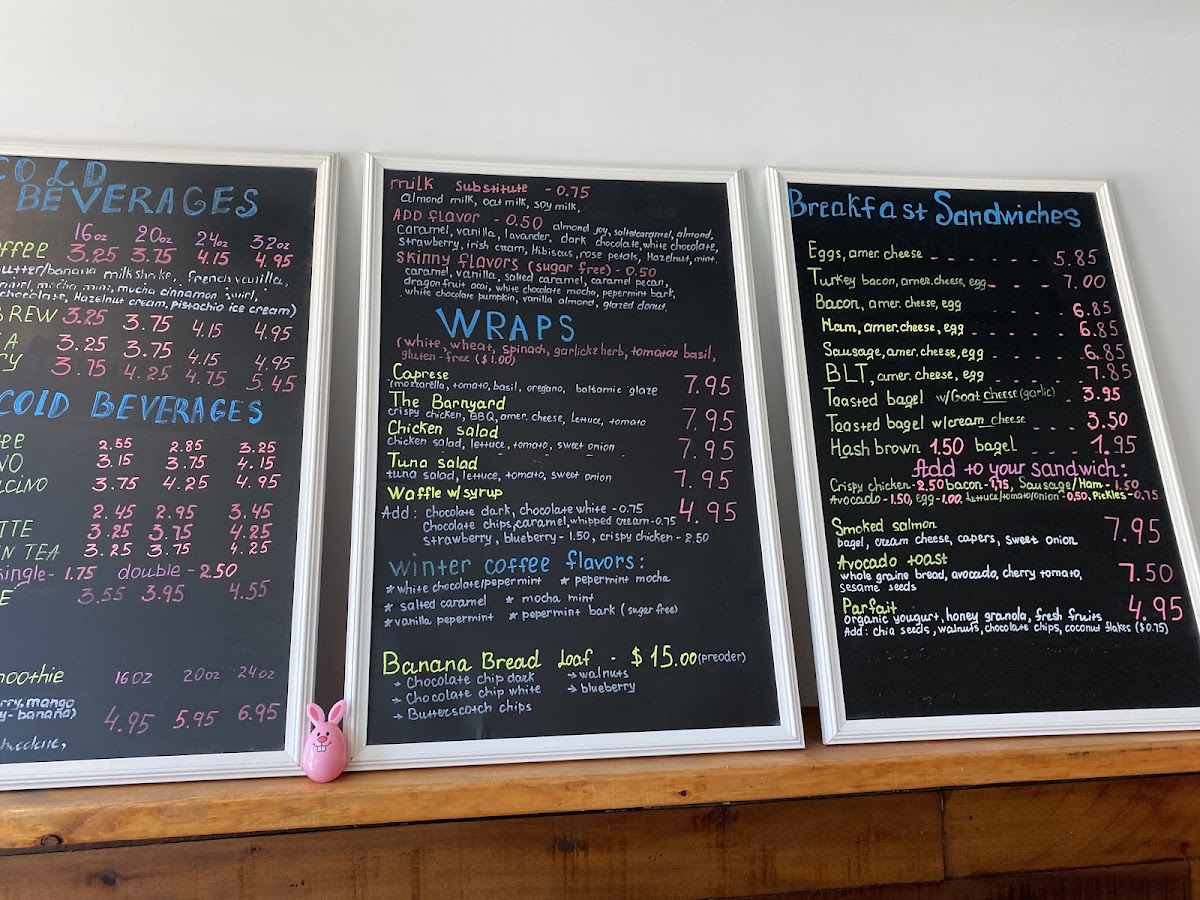 COLD
BEVERAGES
16oz 20oz 24oz 32oz
3.25 3.75 4.15 4.95
milkshake, french vanilla,
mocha mint, mocha cinnamon swirl,
Hazelnut cream, pistachio ice cream)
3.25 3.75 4.15 4.95
3.25 3.75 4.15 4.95
3.75 4.25 4.75 5.45
COLD BEVERAGES
2.55 2.85 3.25
3.15 3.75 4.15
3.75 4.25 4.95
2.45 2.95 3.45
3.25 3.75 4.25
TEA 3.25 3.75 4.25
single - 1.75 double - 2.50
3.55 3.95 4.55
16oz 20oz 24oz
mango
banana) 4.95 5.95 6.95
milk substitute - 0.75
almond milk, oat milk, soy milk,
ADD flavor - 0.50 almond joy, salted caramel, almond,
Caramel, vanilla, lavander, dark chocolate, white chocolate,
strawberry, irish cream, Hibiscus, rose petals, Hazelnut, mint.
Skinny flavors (sugar free) - 0.50
caramel, vanilla, salted caramel, caramel pecan,
dragon fruit acai, white chocolate mocha, pepermint bark,
white chocolate pumpkin, vanilla almond, glazed donut.
WRAPS
(white, wheat, spinach, garlic & herb, tomatoe basil,
gluten-free ($1.00)
Caprese
(mozzarella, tomato, basil, oregano, balsamic glaze 7.95
The Barnyard
crispy chicken, BBQ, amer. cheese, lettuce, tomato 7.95
Chicken salad
chicken salad, lettuce, tomato, sweet onion 7.95
Tuna salad
tuna salad, lettuce, tomato, sweet onion 7.95
Waffle w/syrup
Add: chocolate dark, chocolate white - 0.75 4.95
Chocolate chips, caramel, whipped cream - 0.75
strawberry, blueberry - 1.50, crispy chicken - 2.50
winter coffee flavors:
* white chocolate/pepermint * pepermint mocha
* salted caramel * mocha mint
* vanilla pepermint * pepermint bark (sugar free)
Banana Bread Loaf - $15.00 (preoder)
→ Chocolate chip dark → walnuts
→ Chocolate chip white → blueberry
→ Butterscotch chips
Breakfast Sandwiches
Eggs, amer. cheese - - - - - - - 5.85
Turkey bacon, amer. cheese, egg - - - - 7.00
Bacon, amer. cheese, egg 6.85
Ham, amer. cheese, egg - - - - - 6.85
Sausage, amer. cheese, egg - - - - 6.85
BLT, amer. cheese, egg - - - - - 7.85
Toasted bagel w/Goat cheese (garlic) - 3.95
Toasted bagel w/cream cheese - - - 3.50
Hash brown 1.50 bagel - - - - 1.95
Add to your sandwich:
Crispy chicken - 2.50 bacon - 1,75, Sausage/Ham - 1.50
Avocado - 1.50, egg - 1.00. lettuce/tomato/onion - 0.50, Pickles - 0.75
Smoked salmon
bagel, cream cheese, capers, sweet onion 7.95
Avocado toast
whole graine bread, avocado, cherry tomato, 7.50
sesame seeds
Parfait 4.95
organic yougurt, honey granola, fresh fruits
Add: chia seeds, walnuts, chocolate chips, coconut flakes ($0.75)